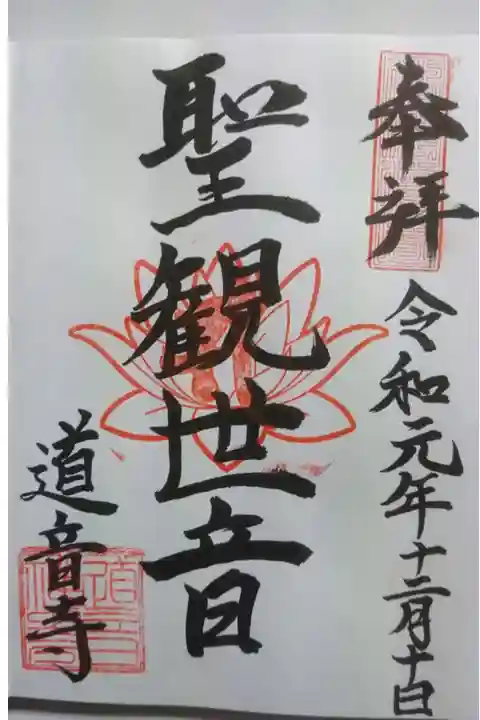 奉拝
令和元年十二月十日
聖観世音
道音寺